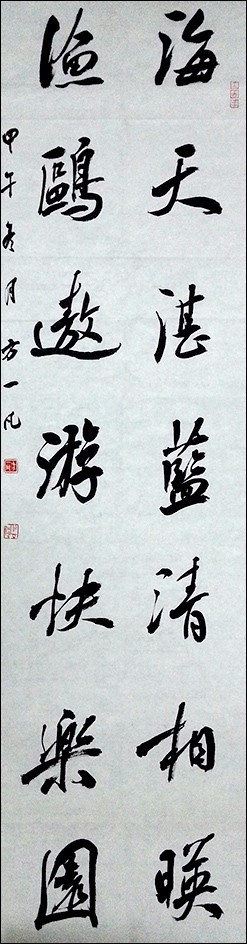 海天湛藍清相暎
漁鷗遨游快樂園
甲午冬月方一凡